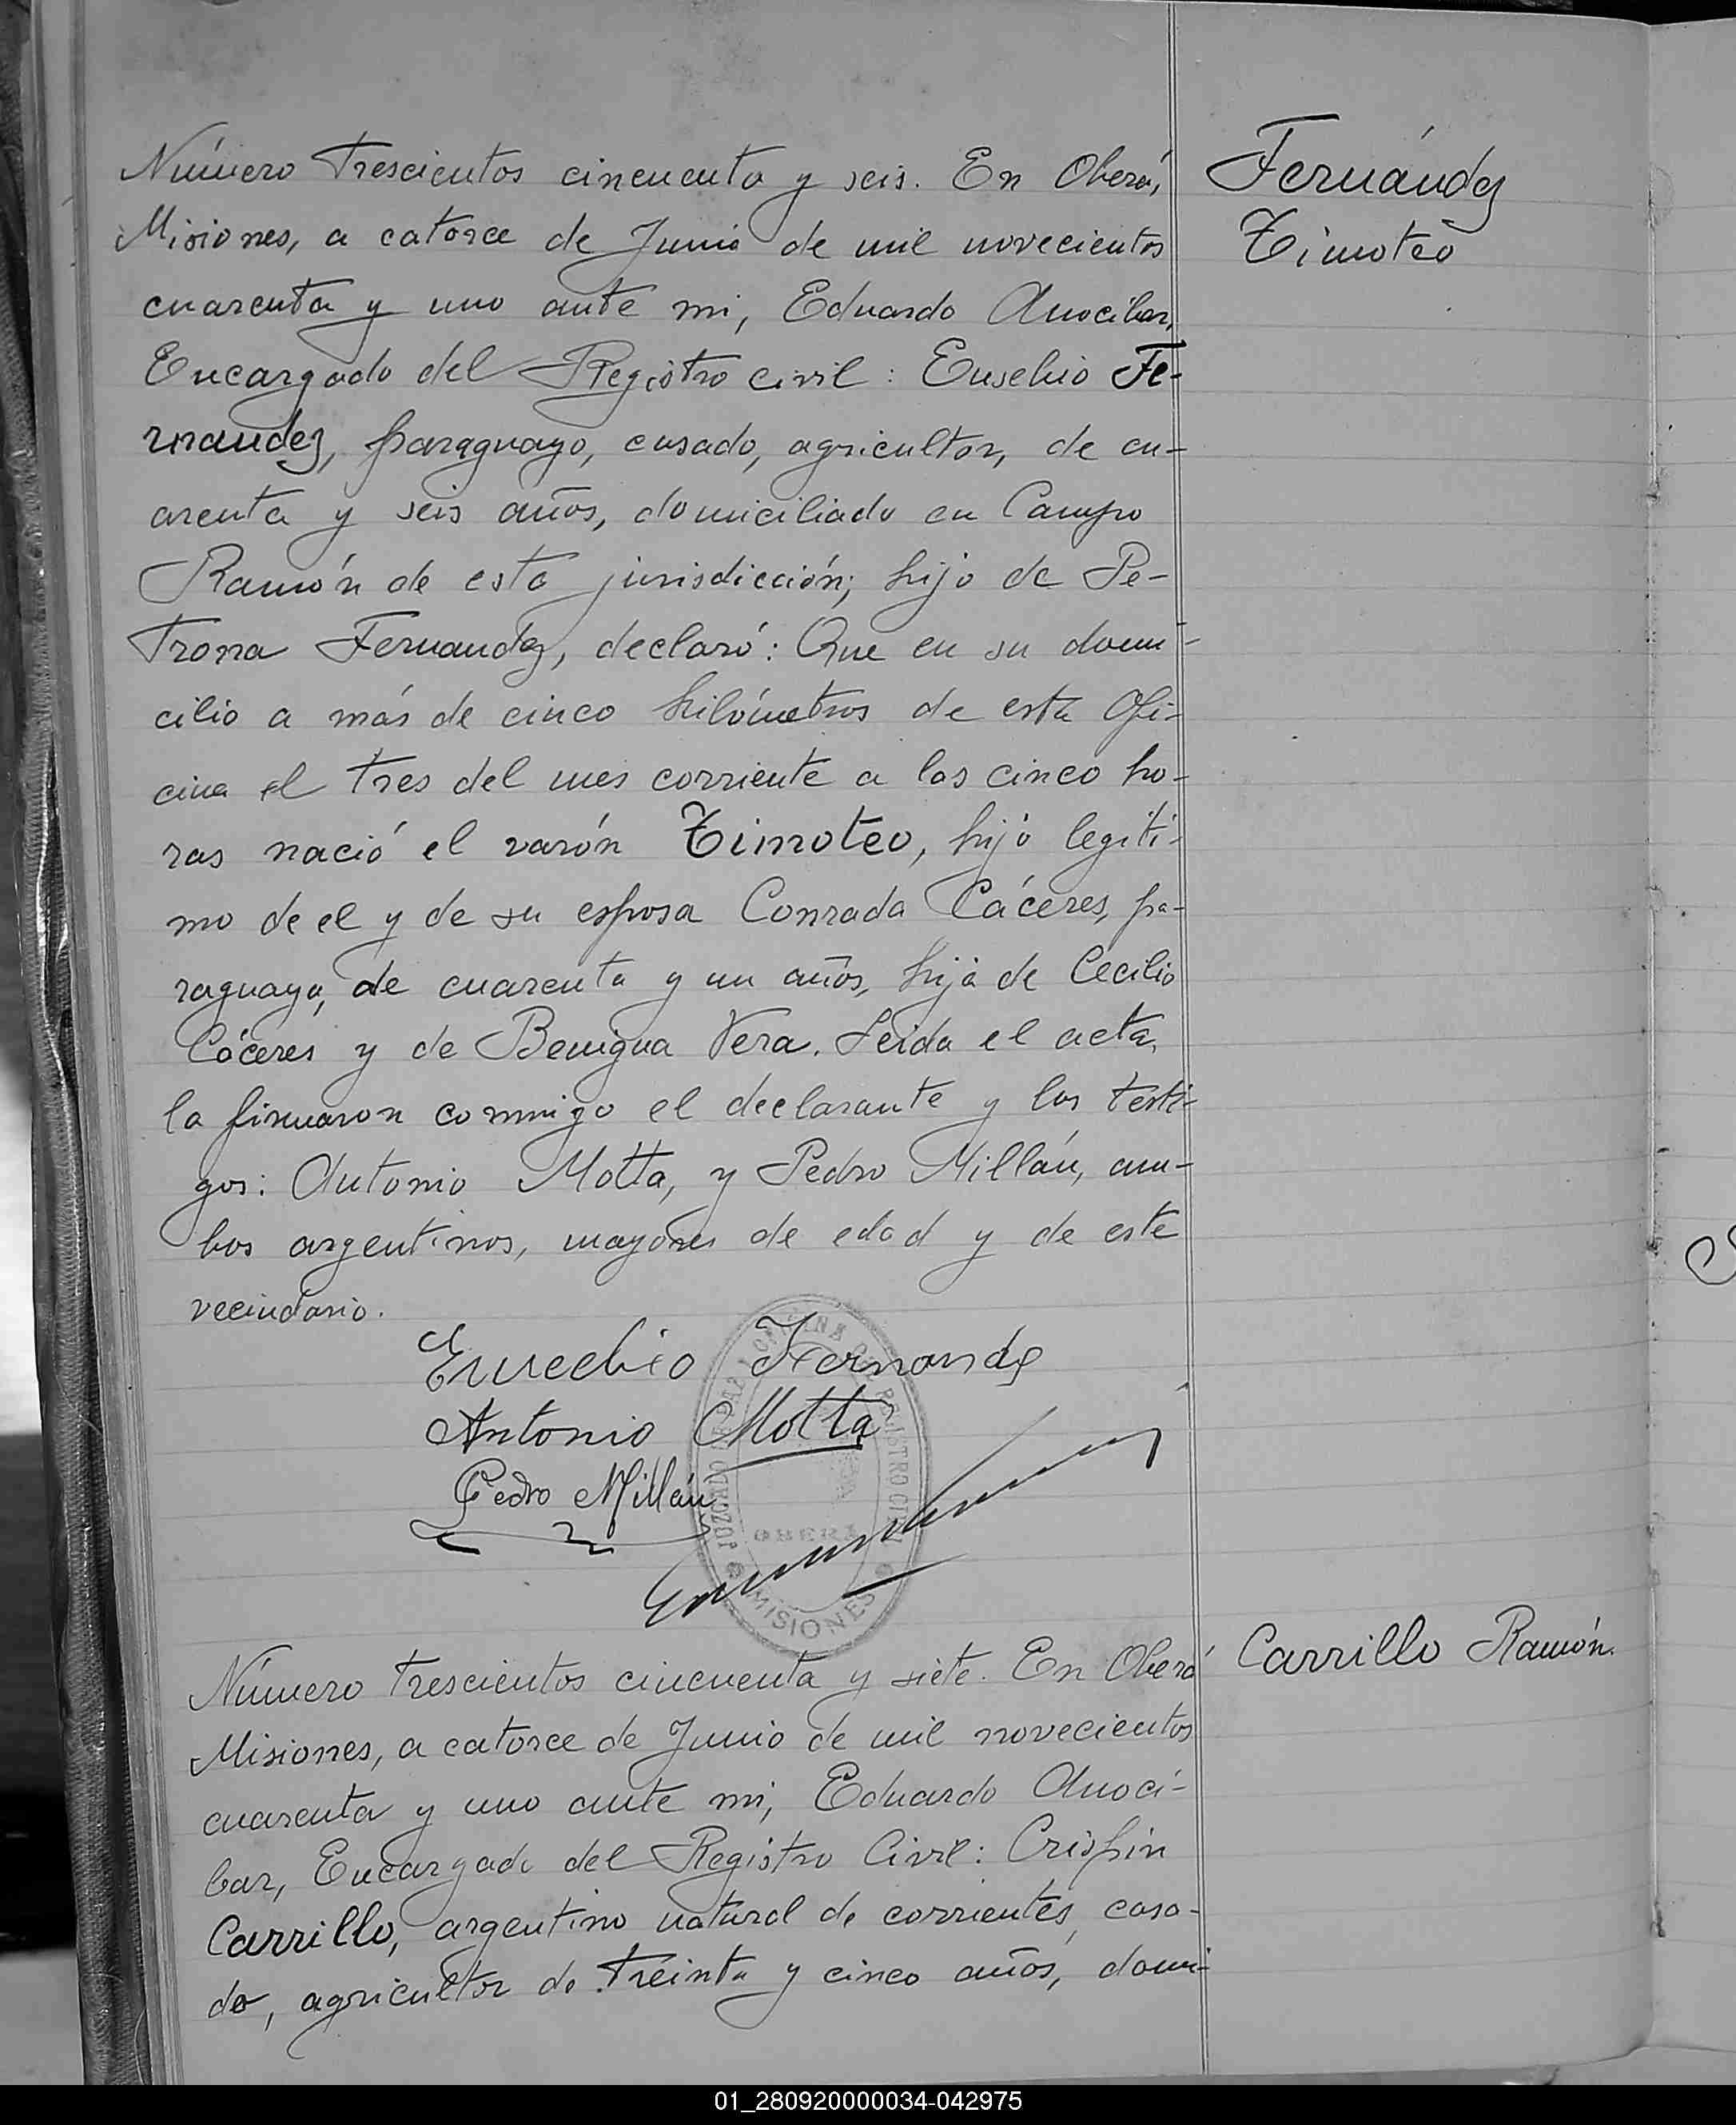 Número Trescientos cincuenta y seis. En Oberá,
Misiones, a catorce de Junio de mil novecientos
cuarenta y uno ante mi, Eduardo Anocibar,
Encargado del Registro civil: Eusebio Fe-
rnandez, paraguayo, casado, agricultor, de cu-
arenta y seis años, domiciliado en Campo
Ramón de esta jurisdicción; hijo de Pe-
trona Fernandez, declaró: Que en su domi-
cilio a más de cinco kilómetros de esta Ofi-
cina el tres del mes corriente a las cinco ho-
ras nació el varón Timoteo, hijo legíti-
mo de el y de su esposa Conrada Cáceres, pa-
raguaya, de cuarenta y un años, hija de Cecilio
Cáceres y de Benigna Vera. Leida el acta,
la firmaron conmigo el declarante y los testi-
gos: Antonio Motta, y Pedro Millán, am-
bos argentinos, mayores de edad y de este
vecindario.
Fernández
Timoteo
Eucebio Fernandez
Antonio Motta
Pedro Millán
JUZGADO DE PAZ Y OFICINA DE REGISTRO CIVIL
OBERÁ
MISIONES
Número trescientos cincuenta y siete. En Oberá
Misiones, a catorce de Junio de mil novecientos
cuarenta y uno ante mi, Eduardo Anoci-
bar, Encargado del Registro Civil: Crispin
Carrillo, argentino natural de corrientes, casa-
do, agricultor de treinta y cinco años, domi-
Carrillo Ramón.
01_280920000034-042975